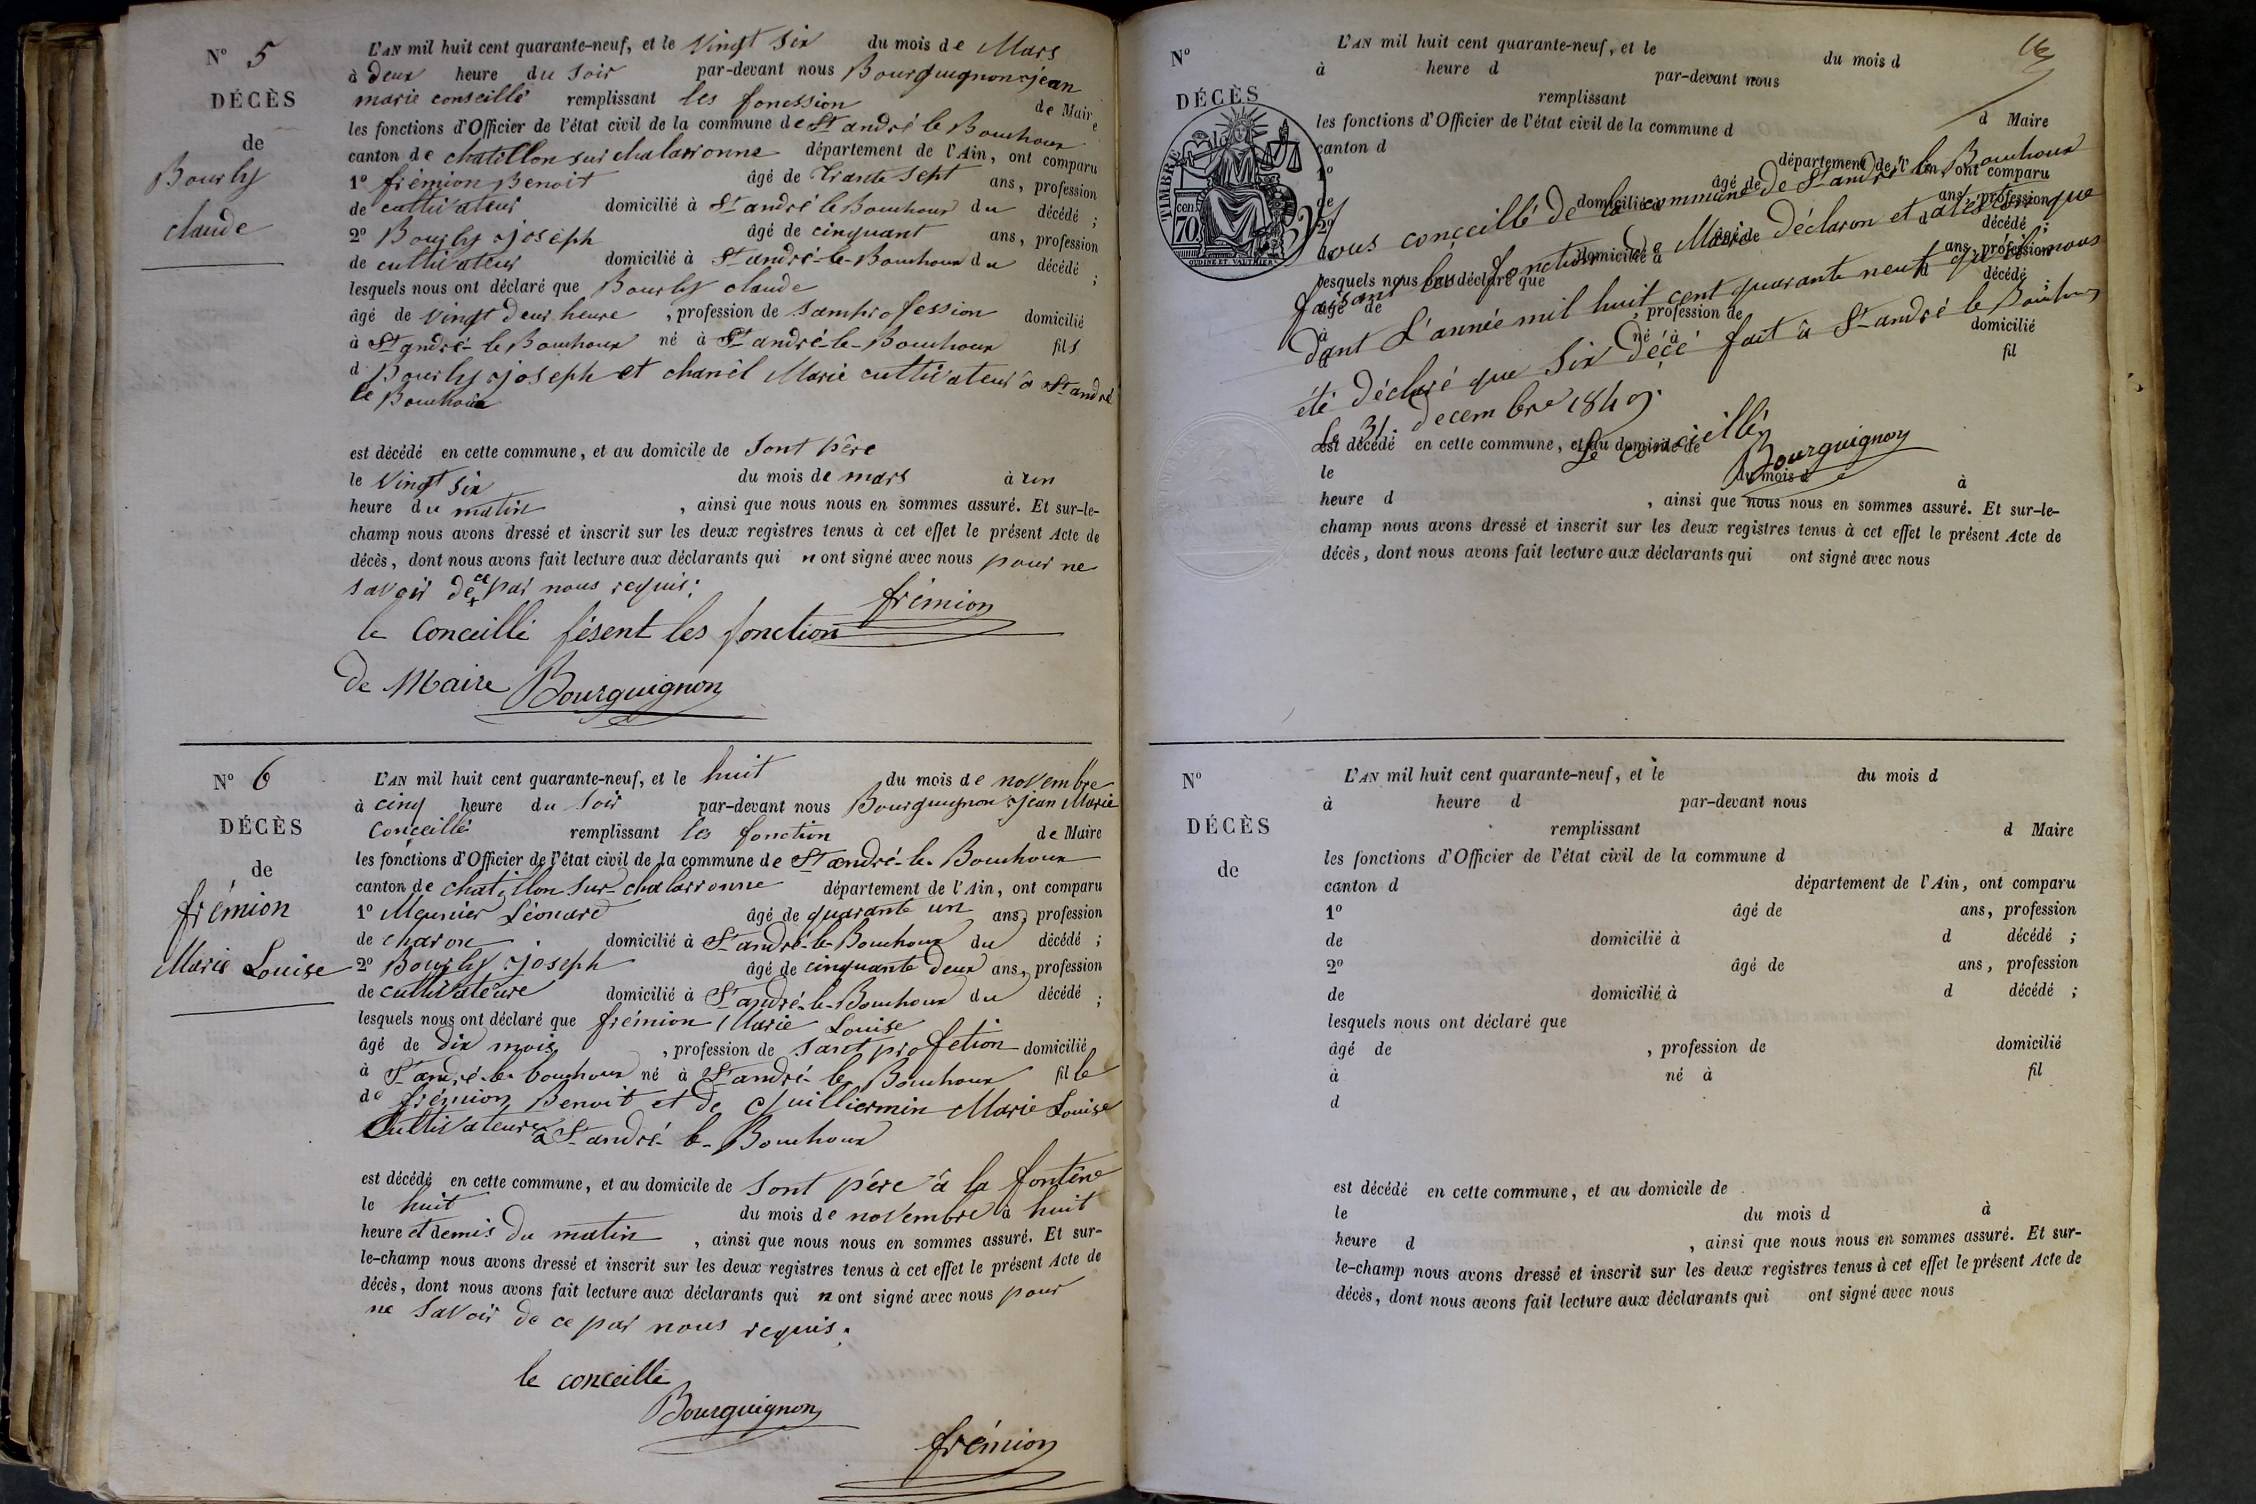 N° 5
DÉCÈS
de
Bourly
claude
L'AN mil huit cent quarante-neuf, et le Vingt Six du mois de Mars
à deux heure du Soir par-devant nous Bourguignon jean
marie conseillé remplissant les fonession de Maire
les fonctions d'Officier de l'état civil de la commune de St andré le Bouchoux
canton de chatillon sur chalarronne département de l'Ain, ont comparu
1° frémion Benoit âgé de trante Sept ans, profession
de cultivateur domicilié à St andré le Bouchoux du décédé ;
2° Bourly joseph âgé de cinquant ans, profession
de cultivateur domicilié à St andré-le-Bouchoux du décédé ;
lesquels nous ont déclaré que Bourly claude
âgé de Vingt deux heure , profession de Samprofession domicilié
à St andré-le Bouchoux né à St andré-le-Bouchoux fils
d Bourly joseph et chanèl Marie cultivateur à St andré
le Bouchoux
est décédé en cette commune, et au domicile de Sont père
le Vingt Six du mois de mars à un
heure du matin , ainsi que nous nous en sommes assuré. Et sur-le-
champ nous avons dressé et inscrit sur les deux registres tenus à cet effet le présent Acte de
décès, dont nous avons fait lecture aux déclarants qui n ont signé avec nous pour ne
savoir de ce par nous requis.
frémion
le Conceillé fésent les fonction
de Maire Bourguignon
N° 6
DÉCÈS
de
frémion
Marie Louise
L'AN mil huit cent quarante-neuf, et le huit du mois de novembre
à cinq heure du Soir par-devant nous Bourguignon jean Marie
Conçeillé remplissant les fonction de Maire
les fonctions d'Officier de l'état civil de la commune de St andré-le-Bouchoux
canton de chatillon Sur chalarronne département de l'Ain, ont comparu
1° Meunier Léonard âgé de quarante un ans, profession
de charon domicilié à St andré-le-Bouchoux du décédé ;
2° Bourly joseph âgé de cinquante deux ans, profession
de cultivateure domicilié à St andré-le-Bouchoux du décédé ;
lesquels nous ont déclaré que frémion Marie Louise
âgé de dix mois , profession de Sant profetion domicilié
à St andré-le-bouchoux né à St andré-le Bouchoux fille
de frémion Benoit et de Guilliermin Marie Louise
Cultivateure à St andré-le-Bouchoux
est décédé en cette commune, et au domicile de Sont père à la fontêne
le huit du mois de novembre à huit
heure et demis du matin , ainsi que nous nous en sommes assuré. Et sur-
le-champ nous avons dressé et inscrit sur les deux registres tenus à cet effet le présent Acte de
décès, dont nous avons fait lecture aux déclarants qui n ont signé avec nous pour
ne Savoir de ce par nous requis.
le conceillé
Bourguignon
frémion
N°
DÉCÈS
TIMBRE
70 cen.
OUDINÉ ET VAUTHIER
L'AN mil huit cent quarante-neuf, et le du mois d
à heure d par-devant nous
remplissant d Maire
les fonctions d'Officier de l'état civil de la commune d
canton d département de l'Ain, ont comparu
1° âgé de ans, profession
de domicilié à d décédé ;
2° âgé de ans, profession
de domicilié à d décédé ;
lesquels nous ont déclaré que
âgé de , profession de domicilié
à né à fil
d
Nous conçeillé de la commune de St andré le Bouchoux
faisant les fonction de Maire déclaron et que
dant L'année mil huit cent quarante neuf qu'il nous
été déclaré que Six décé fait à St andré le Bouchoux
Le 31 decembre 1849.
Le conceillé
Bourguignon
est décédé en cette commune, et au domicile de
le du mois d à
heure d , ainsi que nous nous en sommes assuré. Et sur-le-
champ nous avons dressé et inscrit sur les deux registres tenus à cet effet le présent Acte de
décès, dont nous avons fait lecture aux déclarants qui ont signé avec nous
N°
DÉCÈS
de
L'AN mil huit cent quarante-neuf, et le du mois d
à heure d par-devant nous
remplissant d Maire
les fonctions d'Officier de l'état civil de la commune d
canton d département de l'Ain, ont comparu
1° âgé de ans, profession
de domicilié à d décédé ;
2° âgé de ans, profession
de domicilié à d décédé ;
lesquels nous ont déclaré que
âgé de , profession de domicilié
à né à fil
d
est décédé en cette commune, et au domicile de
le du mois d à
heure d , ainsi que nous nous en sommes assuré. Et sur-
le-champ nous avons dressé et inscrit sur les deux registres tenus à cet effet le présent Acte de
décès, dont nous avons fait lecture aux déclarants qui ont signé avec nous